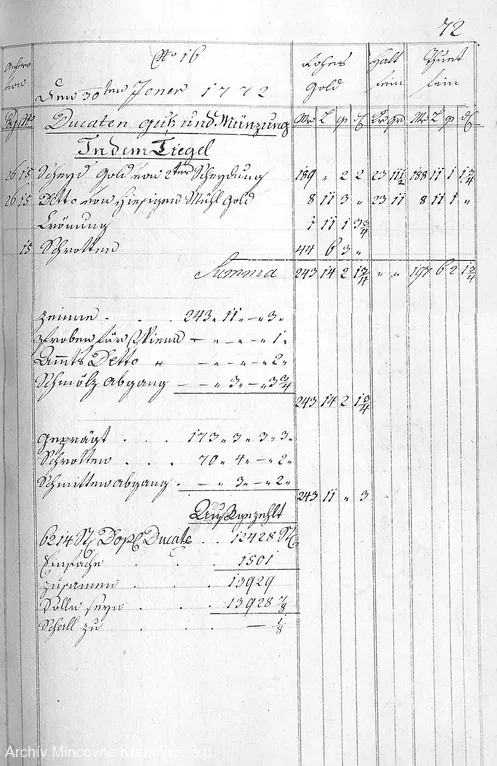 72
No 16
Rohes Halt Thut
Gold fein fein
Den 30ten Jener 1772
Ducaten guß und Münzung Mr L q ₰ Kr Gn Mr L q ₰
In dem Tiegel
26 15 Scheyd Gold von 2ter Scheydung 189 „ 2 2 23 11½ 188 11 1 1¾
26 15 Detto von hiesigen Mühl Gold 8 11 3 „ 23 11 8 11 1 „
Krönung 1 11 1 3¾
15 Schrotten 44 6 3 „
Summa 243 14 2 1¾ „ „ 197 6 2 1¾
Zeinne . . 243 „ 11 „ – „ 3 „
Proben für Wienn – „ – „ – „ 1 „
Ammts Detto „ – „ – „ – „ 2 „
Schmölz Abgang – „ 3 „ – „ 3¾
243 14 2 1¾
Geprägt . . . 173 „ 3 „ 3 „ 3 „
Schrotten . . 70 „ 4 „ – „ 2 „
Schmitten Abgang . – „ 3 „ – „ 2 „
243 11 „ 3
Außgezehlt
6214 St Dopl Ducate . . 12428 St
Einfache . . . 1501
Zusamen . . . 13929
Solle seyn . . . 13928 ⅞
Schall zu . . . – ⅛
Archív Mincovne Kremnica, š.p.